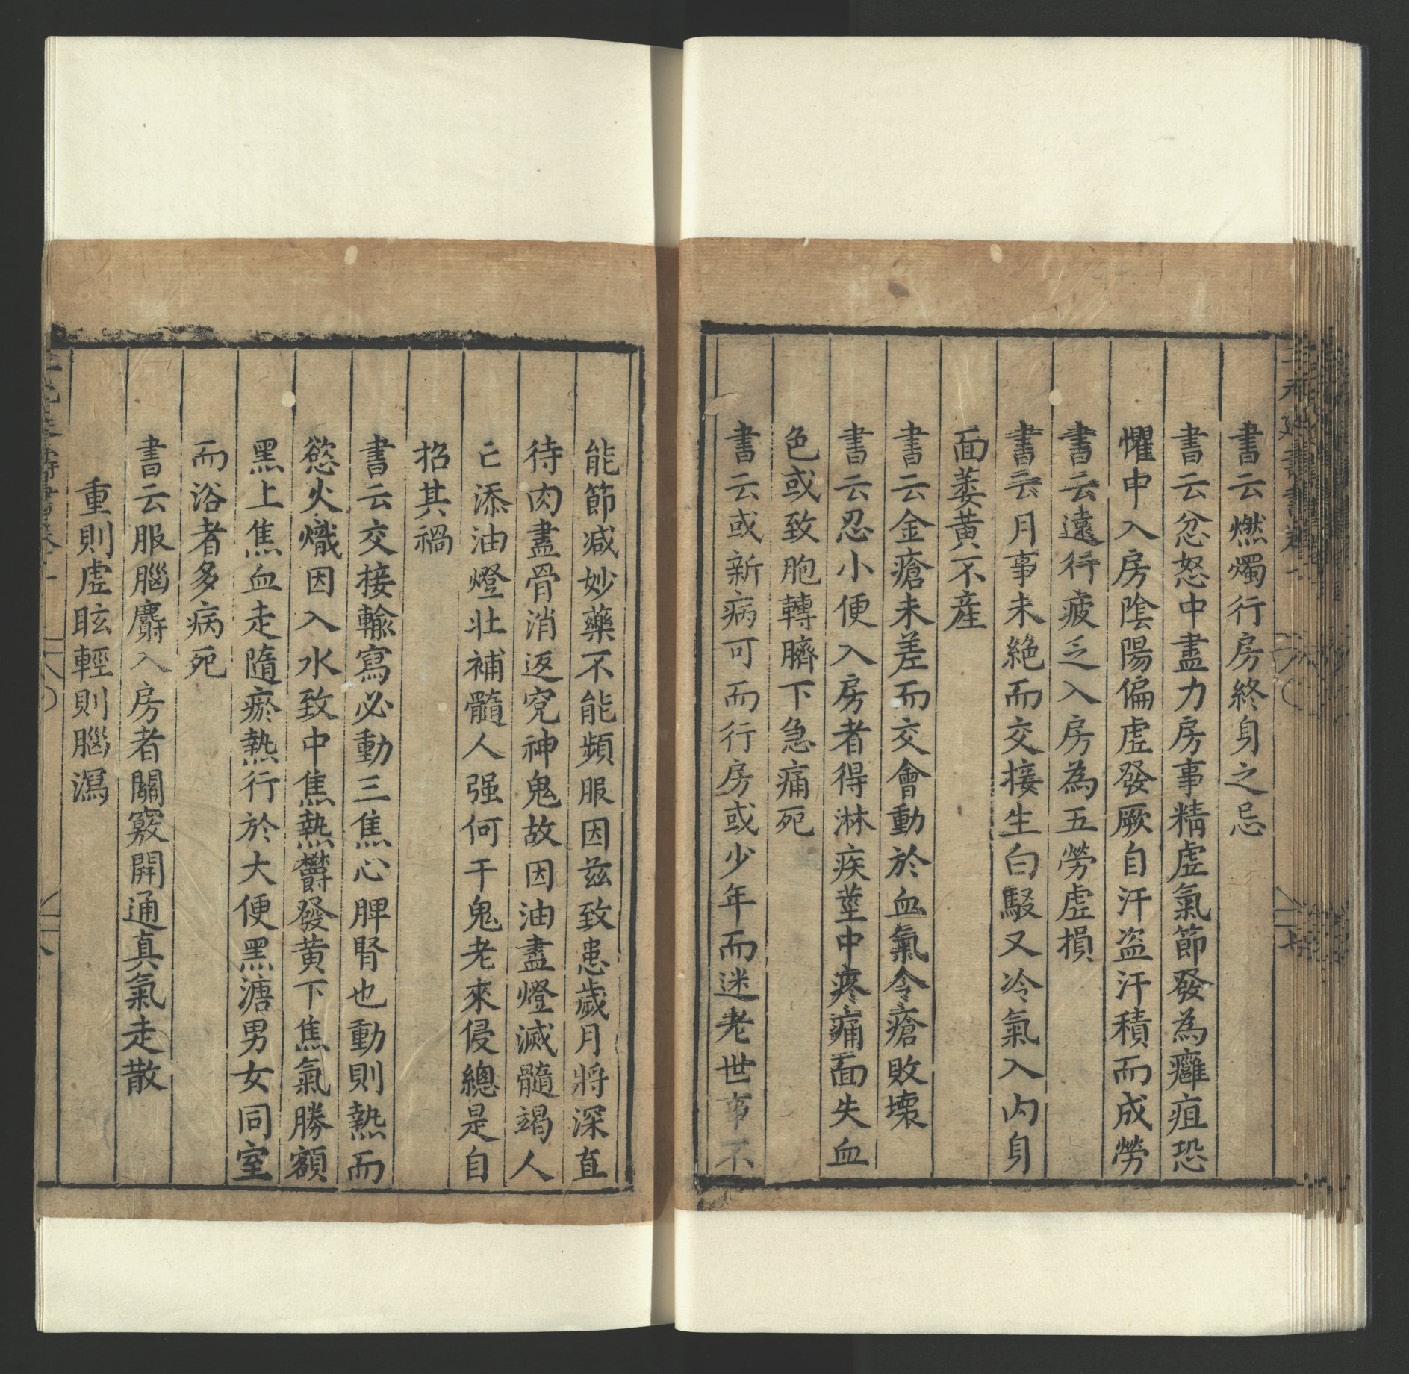 書云燃燭行房終身之忌
書云忿怒中盡力房事精虛氣節發為癰疽恐
懼中入房陰陽偏虛發厥自汗盗汗積而成勞
書云遠行疲乏入房為五勞虛損
書云月事未絶而交接生白駁又冷氣入内身
面萎黄不産
書云金瘡未差而交會動於血氣令瘡敗壞
書云忍小便入房者得淋疾莖中疼痛面失血
色或致胞轉臍下急痛死
書云或新病可而行房或少年而迷老世事不
能節减妙藥不能頻服因兹致患歲月將深直
待肉盡骨消返寃神鬼故因油盡燈滅髓竭人
亡添油燈壮補髓人强何干鬼老來侵總是自
招其禍
書云交接輸寫必動三焦心脾腎也動則熱而
慾火熾因入水致中焦熱欝發黄下焦氣勝額
黑上焦血走隨瘀熱行於大便黑溏男女同室
而浴者多病死
書云服腦麝入房者關竅開通真氣走散
重則虛眩輕則腦瀉